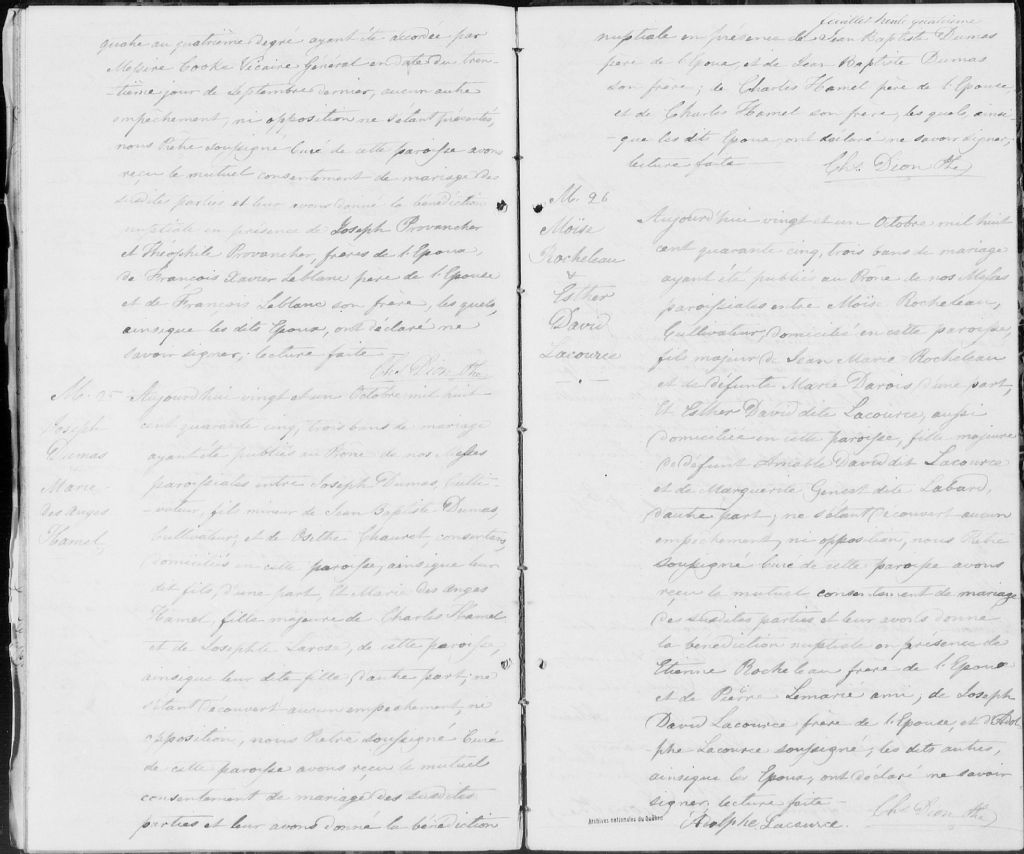 quatre au quatrième degré ayant été accordée par
Messire Cooke Vicaire Général en date du tren-
tième jour de Septembre dernier, aucun autre
empêchement, ni opposition ne s'étant présentés,
nous Prêtre Soussigné Curé de cette paroisse avons
reçu le mutuel consentement de mariage des
susdites parties et leur avons donné la bénédiction
nuptiale en présence de Joseph Provancher
et Théophile Provancher, frères de l'Epoux,
de François Xavier Leblanc père de l'Epouse
et de François Leblanc son frère, lesquels,
ainsique les dits Epoux, ont déclaré ne
savoir signer; lecture faite
Chs Dion Ptre
M. 25
Joseph
Dumas
Marie
des Anges
Hamel,
Aujourd'hui vingt et un Octobre mil huit
cent quarante cinq, trois bans de mariage
ayant été publiés au Prône de nos Messes
paroissiales entre Joseph Dumas, Culti-
-vateur, fils mineur de Jean Baptiste Dumas,
Cultivateur, et de Osithe Chauret, consentans,
domiciliés en cette paroisse, ainsique leur
dit fils, d'une part, Et Marie des Anges
Hamel, fille majeure de Charles Hamel
et de Josephte Larose, de cette paroisse,
ainsique leur dite fille, d'autre part; ne
s'étant découvert aucun empêchement, ni
opposition, nous Prêtre soussigné Curé
de cette paroisse avons reçu le mutuel
consentement de mariage des susdites
parties et leur avons donné la bénédiction
feuillet trente quatrième
nuptiale en présence de Jean Baptiste Dumas
père de l'Epoux, et de Jean Baptiste Dumas
son frère; de Charles Hamel père de l'Epouse,
et de Charles Hamel son frère, lesquels, ainsi-
-que les dits Epoux, ont déclaré ne savoir signer;
lecture faite
Chs. Dion Ptre
M. 26
Moïse
Rocheleau
&
Esther
David
Lacource
Aujourd'hui vingt et un Octobre mil huit
cent quarante cinq, trois bans de mariage
ayant été publiés au Prône de nos Messes
paroissiales entre Moïse Rocheleau,
Cultivateur, domicilié en cette paroisse,
fils majeur de Jean Marie Rocheleau
et de défunte Marie Darois d'une part,
Et Esther David dite Lacource, aussi
domiciliée en cette paroisse, fille majeure
de défunt Amable David dit Lacource
et de Marguerite Genest dite Labard,
d'autre part; ne s'étant découvert aucun
empêchement, ni opposition, nous Prêtre
soussigné Curé de cette paroisse avons
reçu le mutuel consentement de mariage
des susdites parties et leur avons donné
la bénédiction nuptiale en présence de
Etienne Rocheleau frère de l'Epoux
et de Pierre Lemarie ami; de Joseph
David Lacource frère de l'Epouse, et d'Adol
phe Lacource soussigné; les dits autres,
ainsique les Epoux, ont déclaré ne savoir
signer, lecture faite
Adolphe Lacource.
Chs Dion Ptre
Archives nationales du Québec